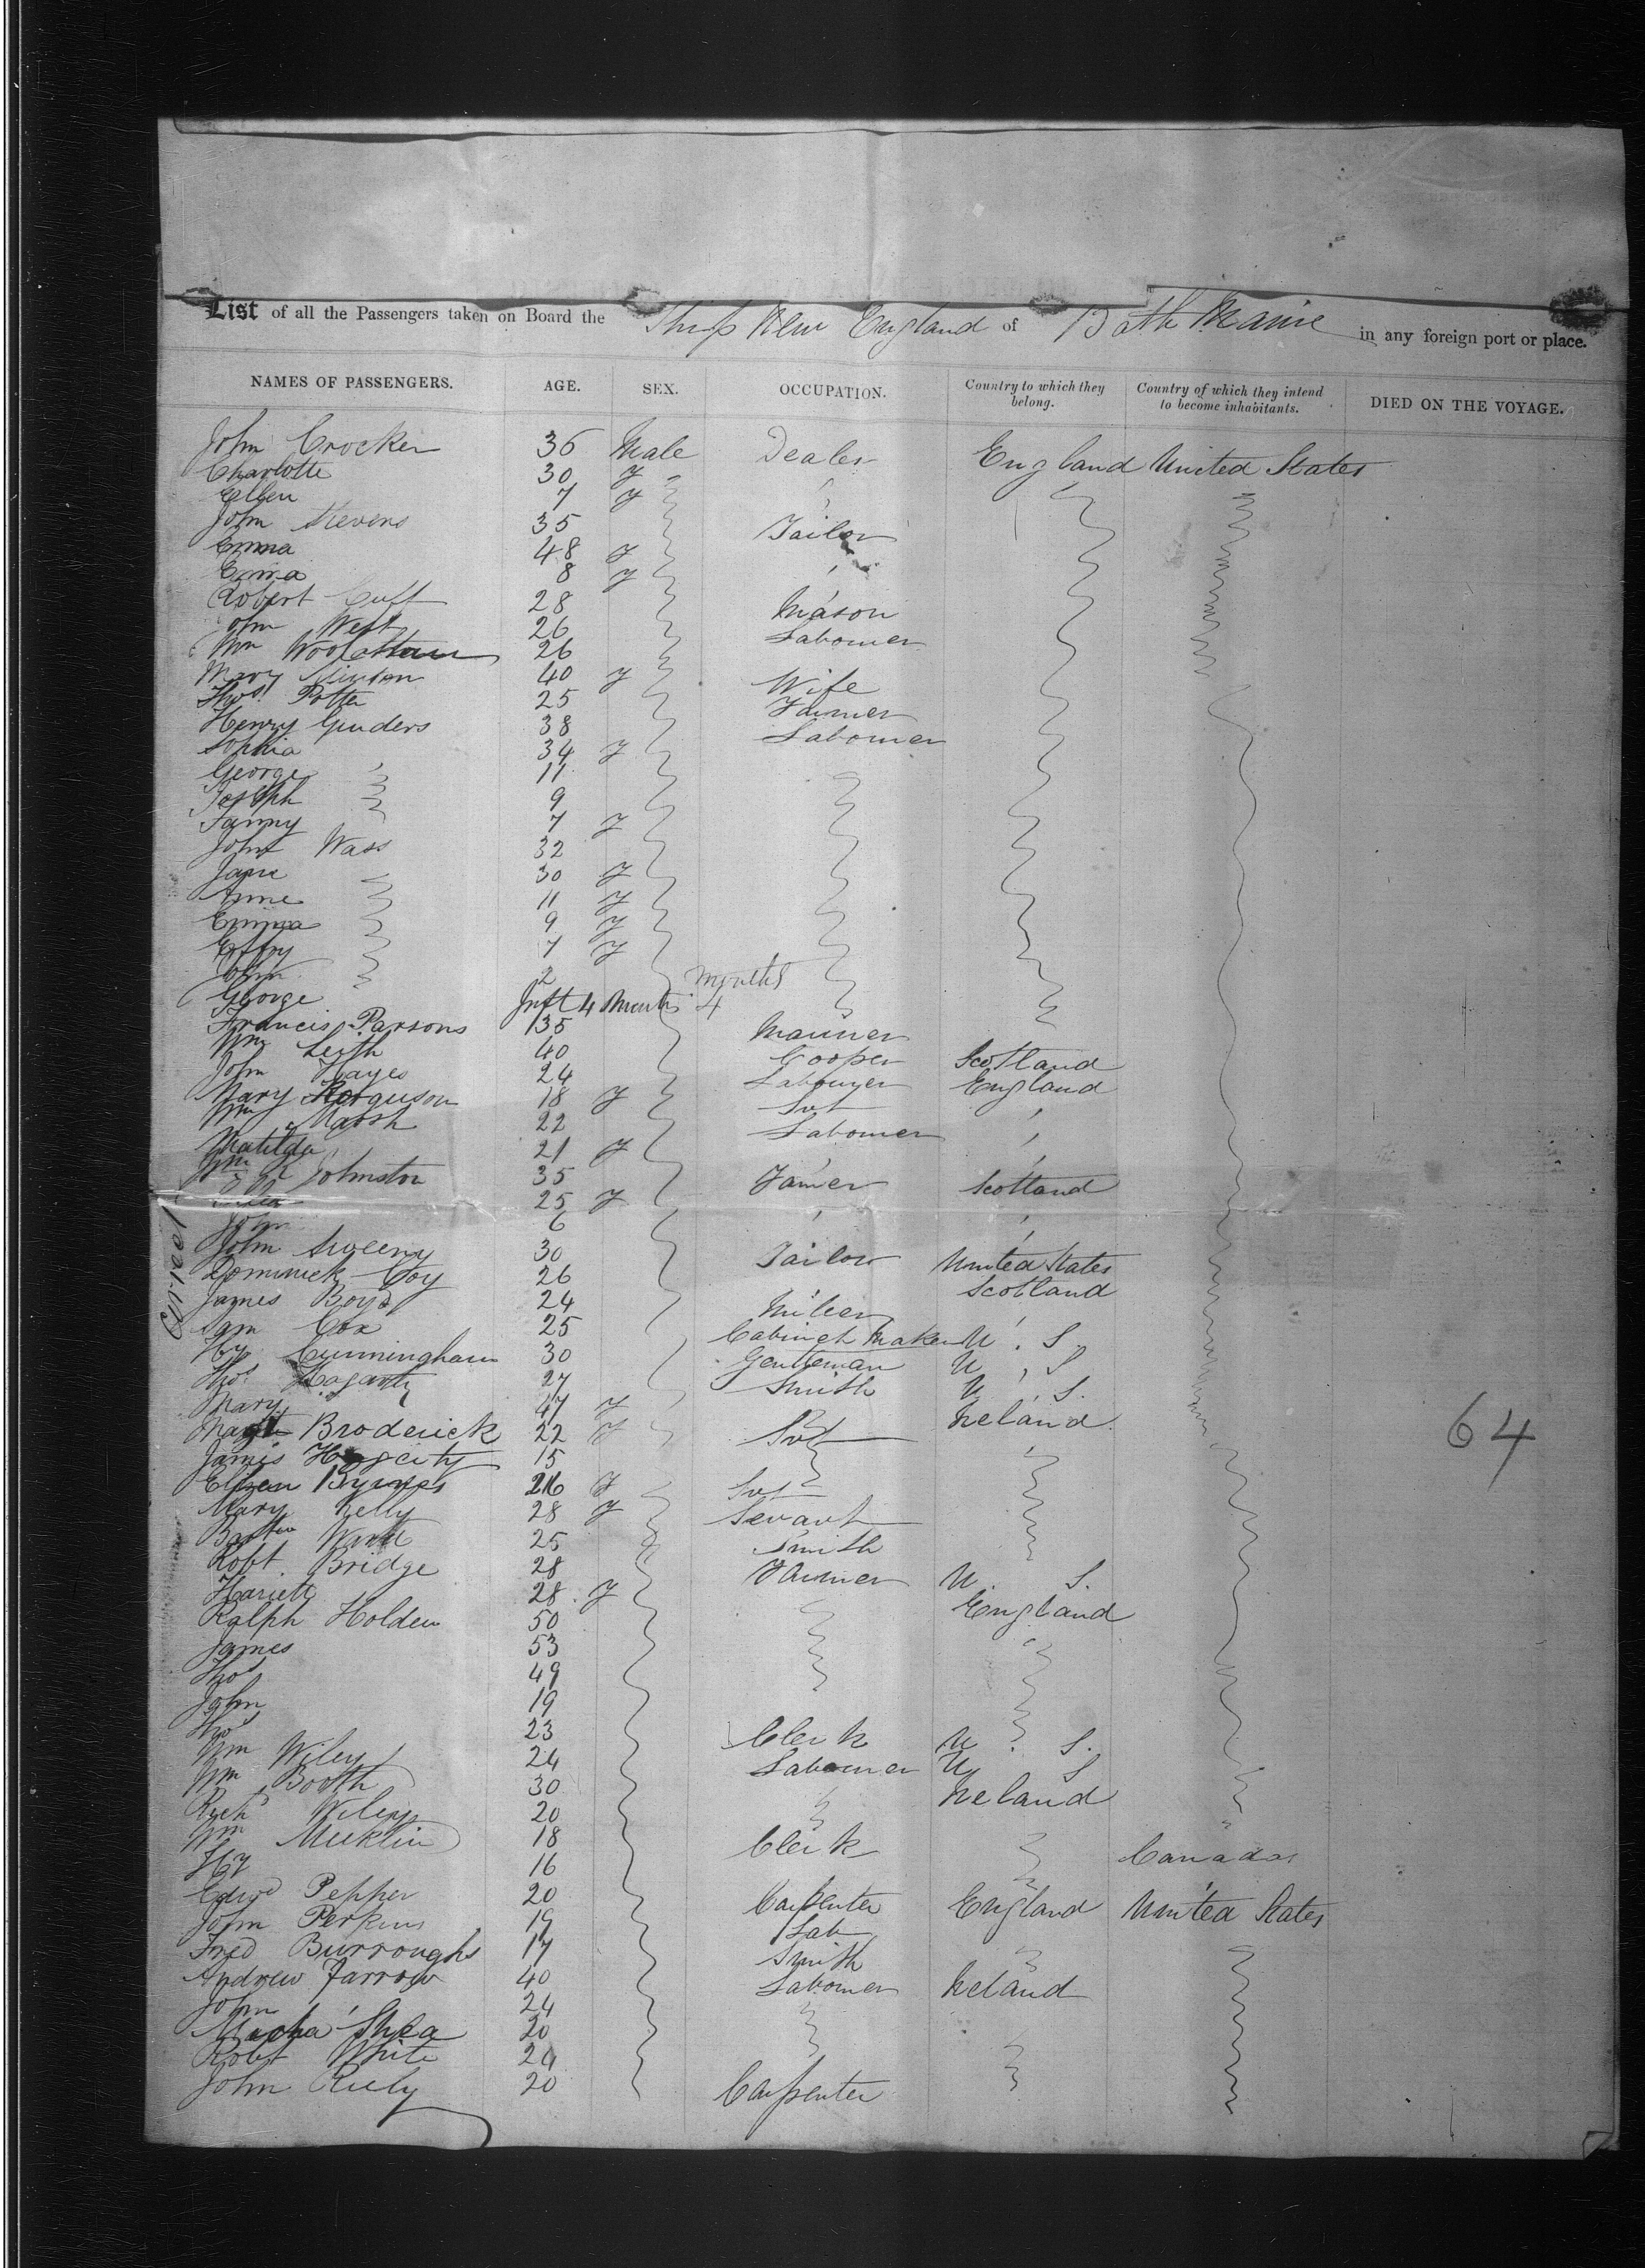 List of all the Passengers taken on Board the Ship New England of Bath Maine in any foreign port or place.
NAMES OF PASSENGERS. AGE. SEX. OCCUPATION. Country to which they belong. Country of which they intend to become inhabitants. DIED ON THE VOYAGE.
John Crocker 36 Male Dealer England United States
Charlotte 30 F "
Ellen 7 F
John Stevens 35 Tailor
Emma 48 F
Emma 8 F
Robert Cuff 28 Mason
John West 26 Labourer
Wm 26
Mary Minton 40 F Wife
Thos. Potter 25 Farmer
Henry Ginders 38 Labourer
Sophia 34 F
George 11
Joseph 9
Fanny 7 F
John Wass 32
Jane 30 F
Anne 11 F
Emma 9 F
Effry 7 F
John 2 months
George Inft 4 Months 4
Francis Parsons 35 Mariner
Wm Leith 40 Cooper Scotland
John Hayes 24 Labourer England
Mary Ferguson 18 F Svt
Wm Marsh 22 Labourer
Matilda 21 F
Wm Johnston 35 Farmer Scotland
25 F
John 6
John Sweeny 30 Tailor United States
Dominick Coy 26 Scotland
James Boyd 24 Miller
Sam Cox 25 Cabinet Maker U. S.
Hy Cunningham 30 Gentleman U, S
Thos. Hagarty 27 Smith U, S.
Mary 47 F Ireland
Magt Broderick 22 F Svt
James Hagerty 15
Ellen Byrnes 26 F Svt
Mary Kelly 28 F Servant
Ward 25 Smith
Robt. Bridge 28 Farmer U. S.
Hariett 28 F England
Ralph Holden 50
James 53
Thos 49
John 19
Thos 23 Clerk U. S.
Wm Wiley 24 Labourer U S
Wm Booth 30 Ireland
Richd Wiley 20
Wm Mecklin 18 Clerk Canada
Hy 16
Edwd Pepper 20 Carpenter England United States
John Perkins 19 Lab
Fred Burroughs 17 Smith
Andrew Farrow 40 Labourer Ireland
John 24
Shea 20
Robt White 24
John Riely 20 Carpenter
64